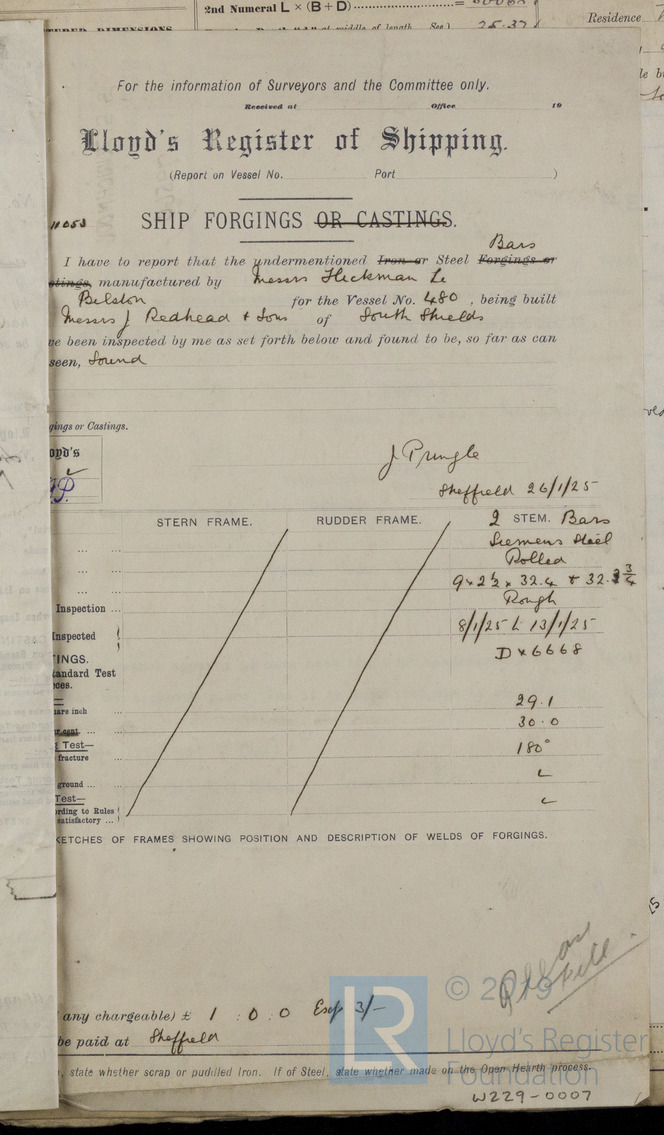 2nd Numeral L × (B + D)
at middle of length See)
25.37
Residence
For the information of Surveyors and the Committee only.
Received at Office 19
Lloyd's Register of Shipping.
(Report on Vessel No. Port )
11053
SHIP FORGINGS OR CASTINGS.
Bars
I have to report that the undermentioned Iron or Steel Forgings or
stings, manufactured by Messrs Hickman Ld
Bilston for the Vessel No. 480, being built
Messrs J Redhead & Sons of South Shields
ve been inspected by me as set forth below and found to be, so far as can
seen, Sound
gings or Castings.
oyd's
J Pringle
Sheffield 26/1/25
STERN FRAME. RUDDER FRAME. 2 STEM. Bars
Siemens Steel
Rolled
9 × 2½ × 32.4 & 32.3¾
Inspection ... Rough
Inspected 8/1/25 & 13/1/25
INGS. D×6668
tandard Test
ces.
uare inch ... 29.1
er cent. ... 30.0
Test— 180°
fracture
ground ...
Test—
ording to Rules
satisfactory ...
KETCHES OF FRAMES SHOWING POSITION AND DESCRIPTION OF WELDS OF FORGINGS.
any chargeable) £ 1 : 0 : 0 Exp 3/-
be paid at Sheffield
, state whether scrap or puddled Iron. If of Steel, state whether made on the Open Hearth process.
LR
© 2019
Lloyd's Register
Foundation
W229-0007